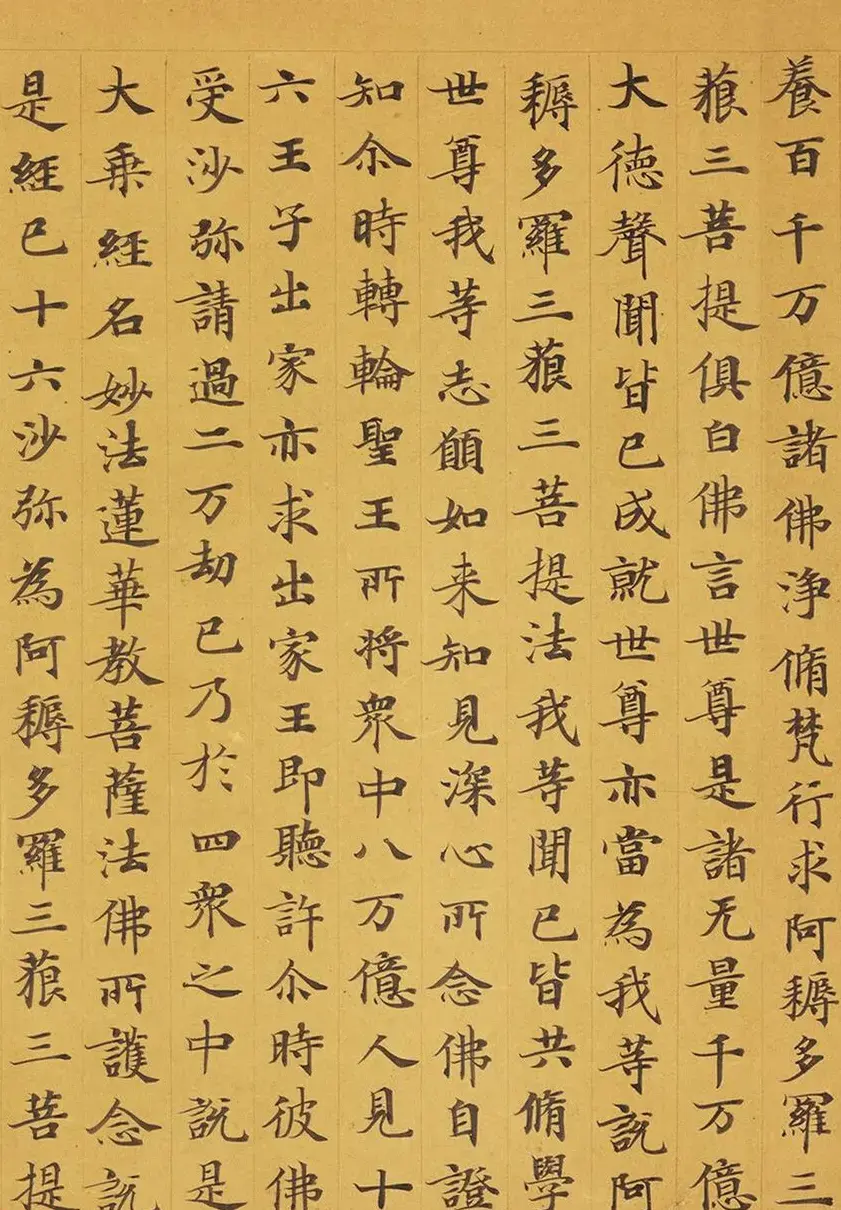 養百千万億諸佛浄脩梵行求阿耨多羅三
藐三菩提俱白佛言世尊是諸无量千万億
大徳聲聞皆已成就世尊亦當為我等説阿
耨多羅三藐三菩提法我等聞已皆共脩學
世尊我等志願如来知見深心所念佛自證
知尒時轉輪聖王所将衆中八万億人見十
六王子出家亦求出家王即聽許尒時彼佛
受沙弥請過二万劫已乃於四衆之中説是
大乗經名妙法蓮華教菩薩法佛所護念説
是經已十六沙弥為阿耨多羅三藐三菩提